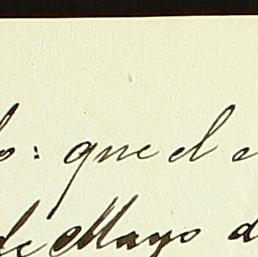 : que el
de Mayo d